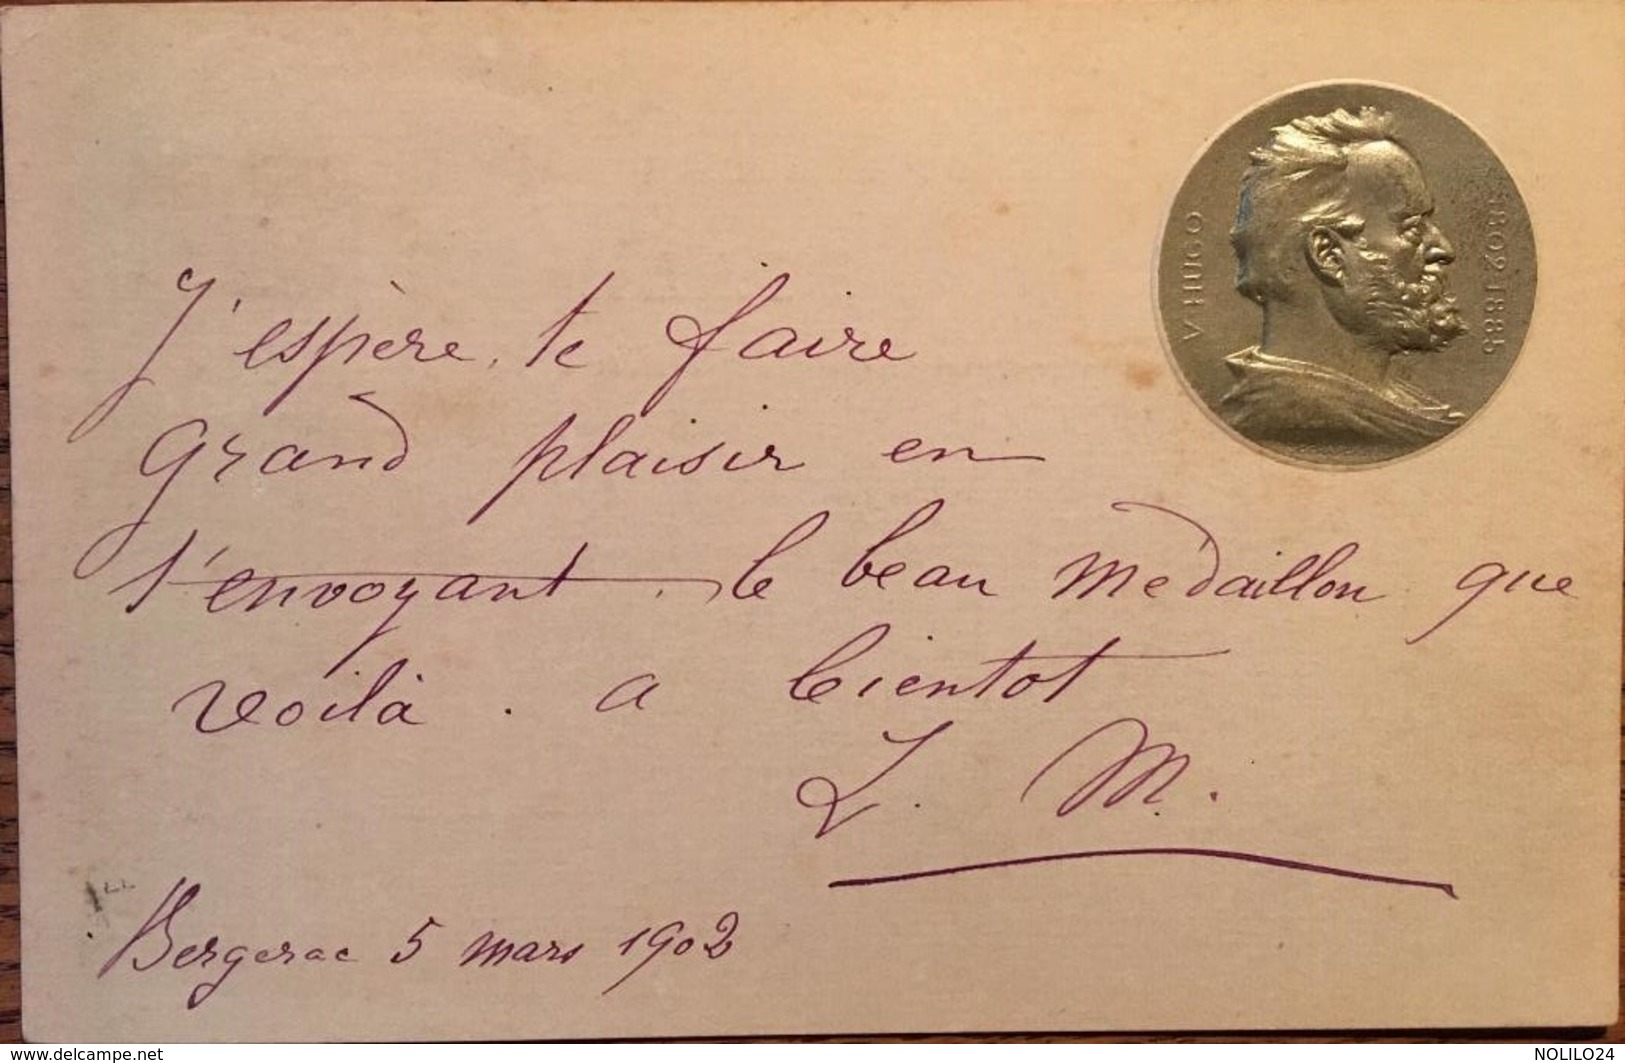 V. HUGO
1802-1885
J'espère te faire
grand plaisir en
t'envoyant le beau médaillon que
voilà. a bientot
L. M.
Bergerac 5 mars 1902
www.delcampe.net
NOLILO24